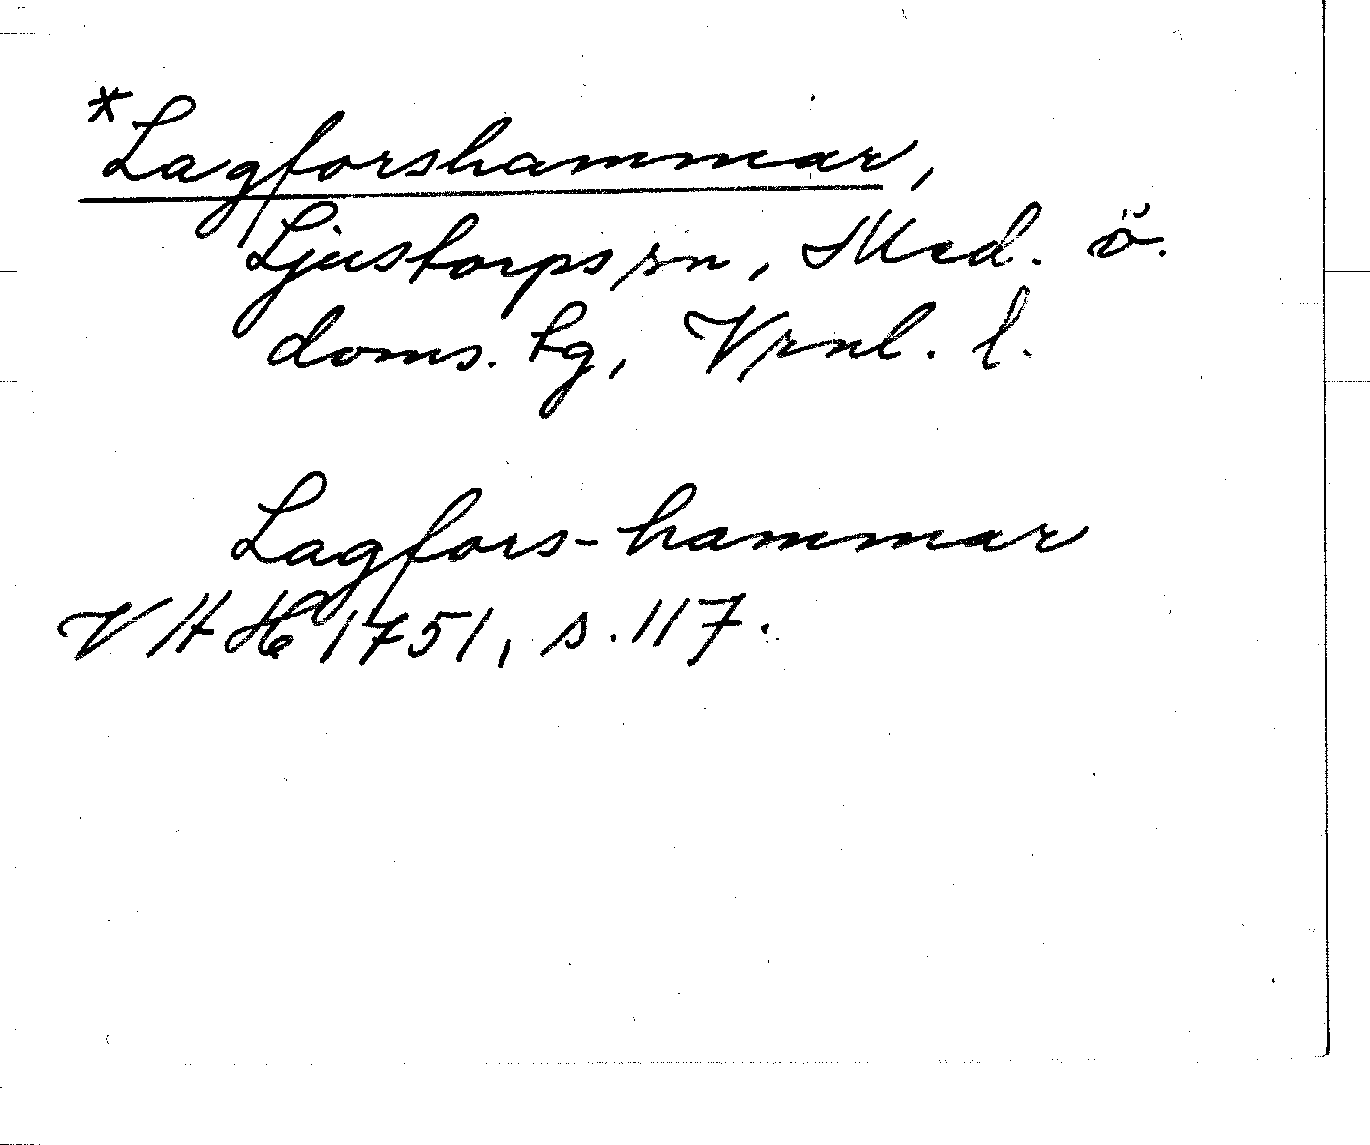 *Lagforshammar,
Ljustorps sn, Med. ö.
doms. tg, Vrnl. l.
Lagfors-hammar
VHH 1751, s. 117.